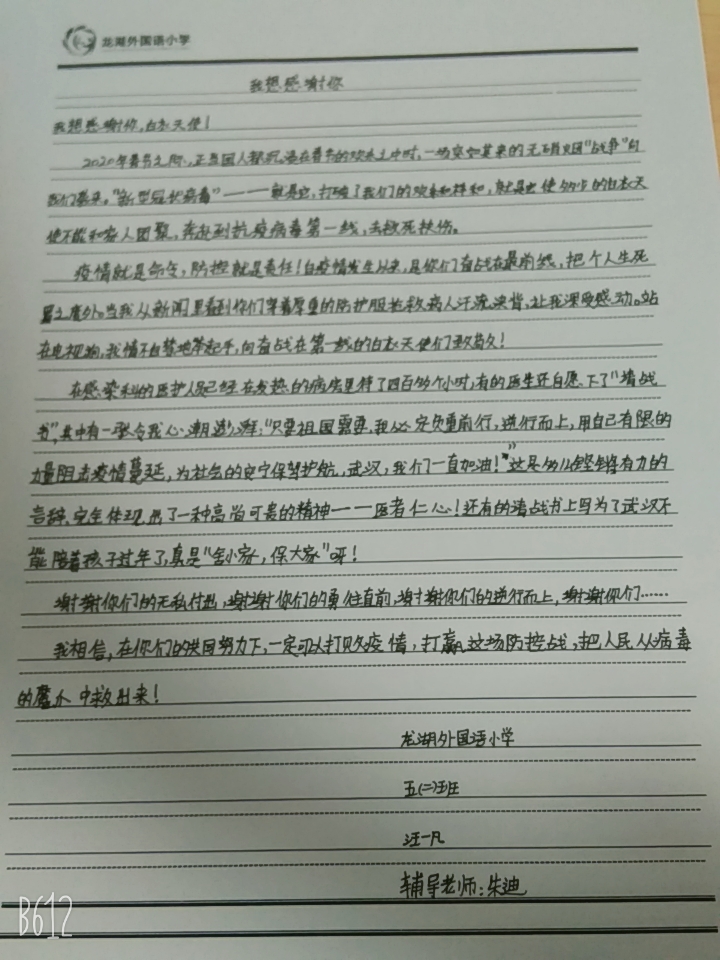 龙湖外国语小学
我想感谢你
我想感谢你,白衣天使!
2020年春节之际,正当国人都沉浸在春节的欢乐之中时,一场突如其来的无硝烟"战争"向
我们袭来。"新型冠状病毒"——就是它,打破了我们的欢乐和祥和,就是它使多少的白衣天
使不能和家人团聚,奔赴到抗疫病毒第一线,去救死扶伤。
疫情就是命令,防控就是责任!自疫情发生以来,是你们奋战在最前线,把个人生死
置之度外。当我从新闻里看到你们穿着厚重的防护服抢救病人汗流浃背,让我深受感动。站
在电视前,我情不自禁地举起手,向奋战在第一线的白衣天使们致敬!
在感染科的医护人员已经在发热的病房里待了四百多个小时,有的医生还自愿下了"请战
书",其中有一张令我心潮澎湃:"只要祖国需要,我必定负重前行,逆行而上,用自己有限的
力量阻击疫情蔓延,为社会的安宁保驾护航,武汉,我们一直加油!"这是多么铿锵有力的
言辞,完全体现出了一种高尚可贵的精神——医者仁心!还有的请战书上写为了武汉不
能陪着孩子过年了,真是"舍小家,保大家"呀!
谢谢你们的无私付出,谢谢你们的勇往直前,谢谢你们的逆行而上,谢谢你们……
我相信,在你们的共同努力下,一定可以打败疫情,打赢这场防控战,把人民从病毒
的魔爪中救出来!
龙湖外国语小学
五(二)班
汪一凡
辅导老师:朱迪
B612